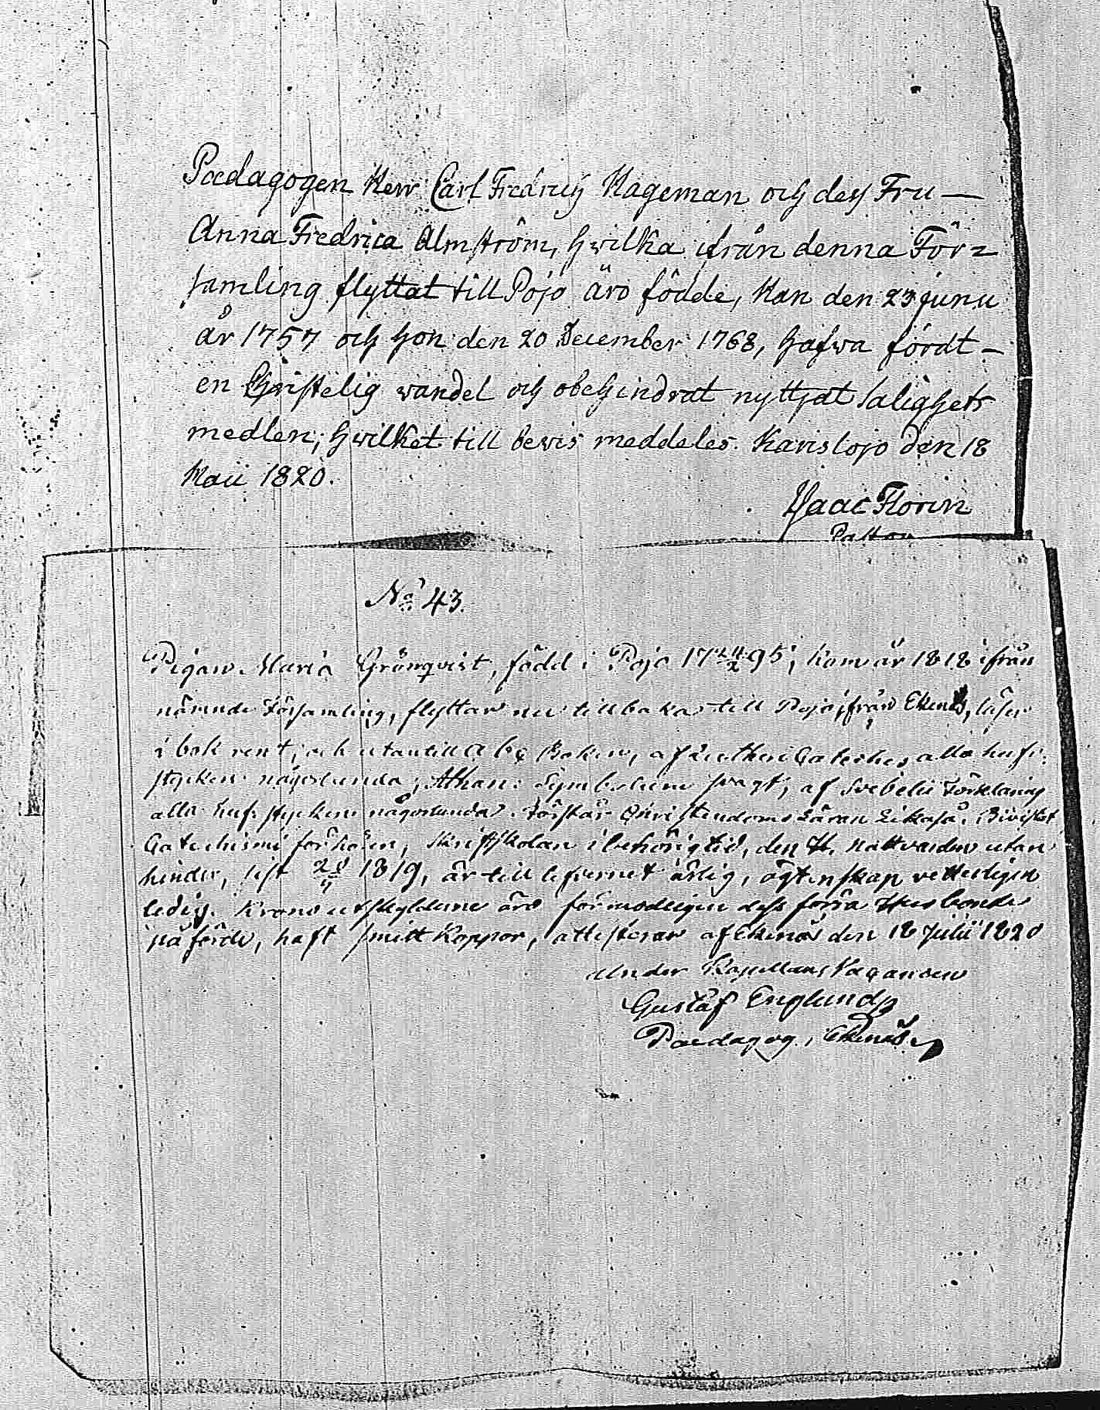 Pædagogen Herr Carl Fredric Hageman och dess Fru —
Anna Fredrica Almström, hwilka ifrån denna För=
samling flyttat till Pojo äro födde, Han den 23 junii
år 1757 och hon den 20 December 1768, hafwa fördt —
en Christelig wandel och obehindrat nyttjat salighets
medlen; hwilket till bevis meddelas. Karislojo den 18
Maii 1820.
Isaac Florin
Pastor
No 43.
Pigan Maria Grönqvist, född i Pojo 17 95, kom år 1818 ifrån
nämnde Församling, flyttar nu tillbaka till Pojo, från Ekenäs, läser
i bok rent, och utantill a b c Boken, af Lutheri Cateches alla huf:
stycken någorlunda, Athan: Symbolum svagt, af Svebelii Förklaring
alla huf: stycken någorlunda. Förstår Christendoms Läran likaså. Bivistat
Catechismi förhören, Skriftskolan i behörig tid, den H. nattvarden utan
hinder, sist 1819, är till lefvernet ärlig, ägtenskap vetterligen
ledig. Krono utskylderne äro förmodligen dess förra Husbonde
påförde, haft smitt Koppor, attesterar af Ekenäs den 18 Julii 1820
under Kapellans Vacancen
Gustaf Englund
Pædagog i Ekenäs.